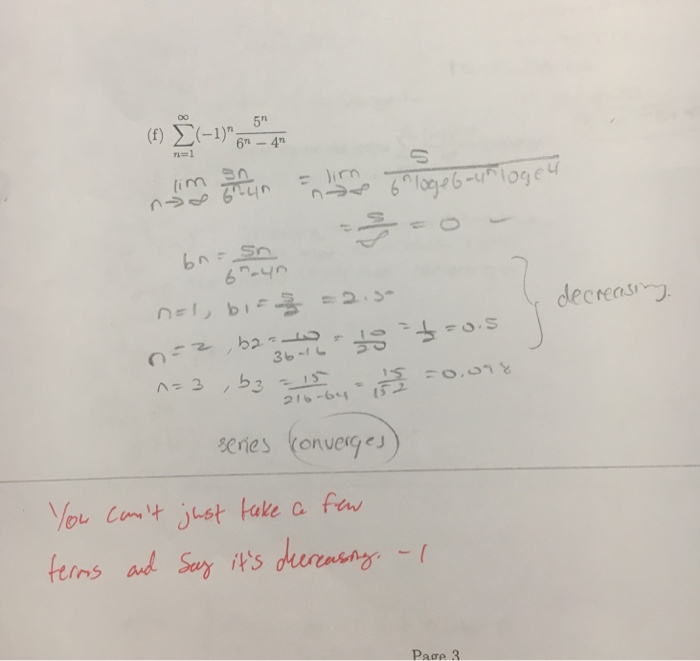 (f) ∑_{n=1}^{∞} (−1)ⁿ 5ⁿ / (6ⁿ − 4ⁿ)
lim_{n→∞} 5n / (6ⁿ−4n) = lim_{n→∞} 5 / (6ⁿ loge6 − 4ⁿ loge4)
= 5/∞ = 0 –
bn = 5n / (6ⁿ−4n)
n=1, b1 = 5/2 = 2.5
decreasing.
n=2, b2 = 10 / (36−16) = 10/20 = 1/2 = 0.5
n=3, b3 = 15 / (216−64) = 15/152 = 0.098
series converges
You can't just take a few
terms and say it's decreasing. −1
Page 3